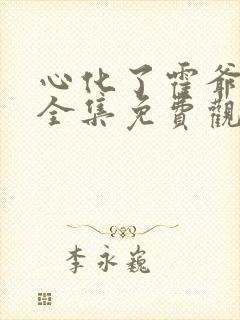 心化了霍爺
全集免費觀
李永巍